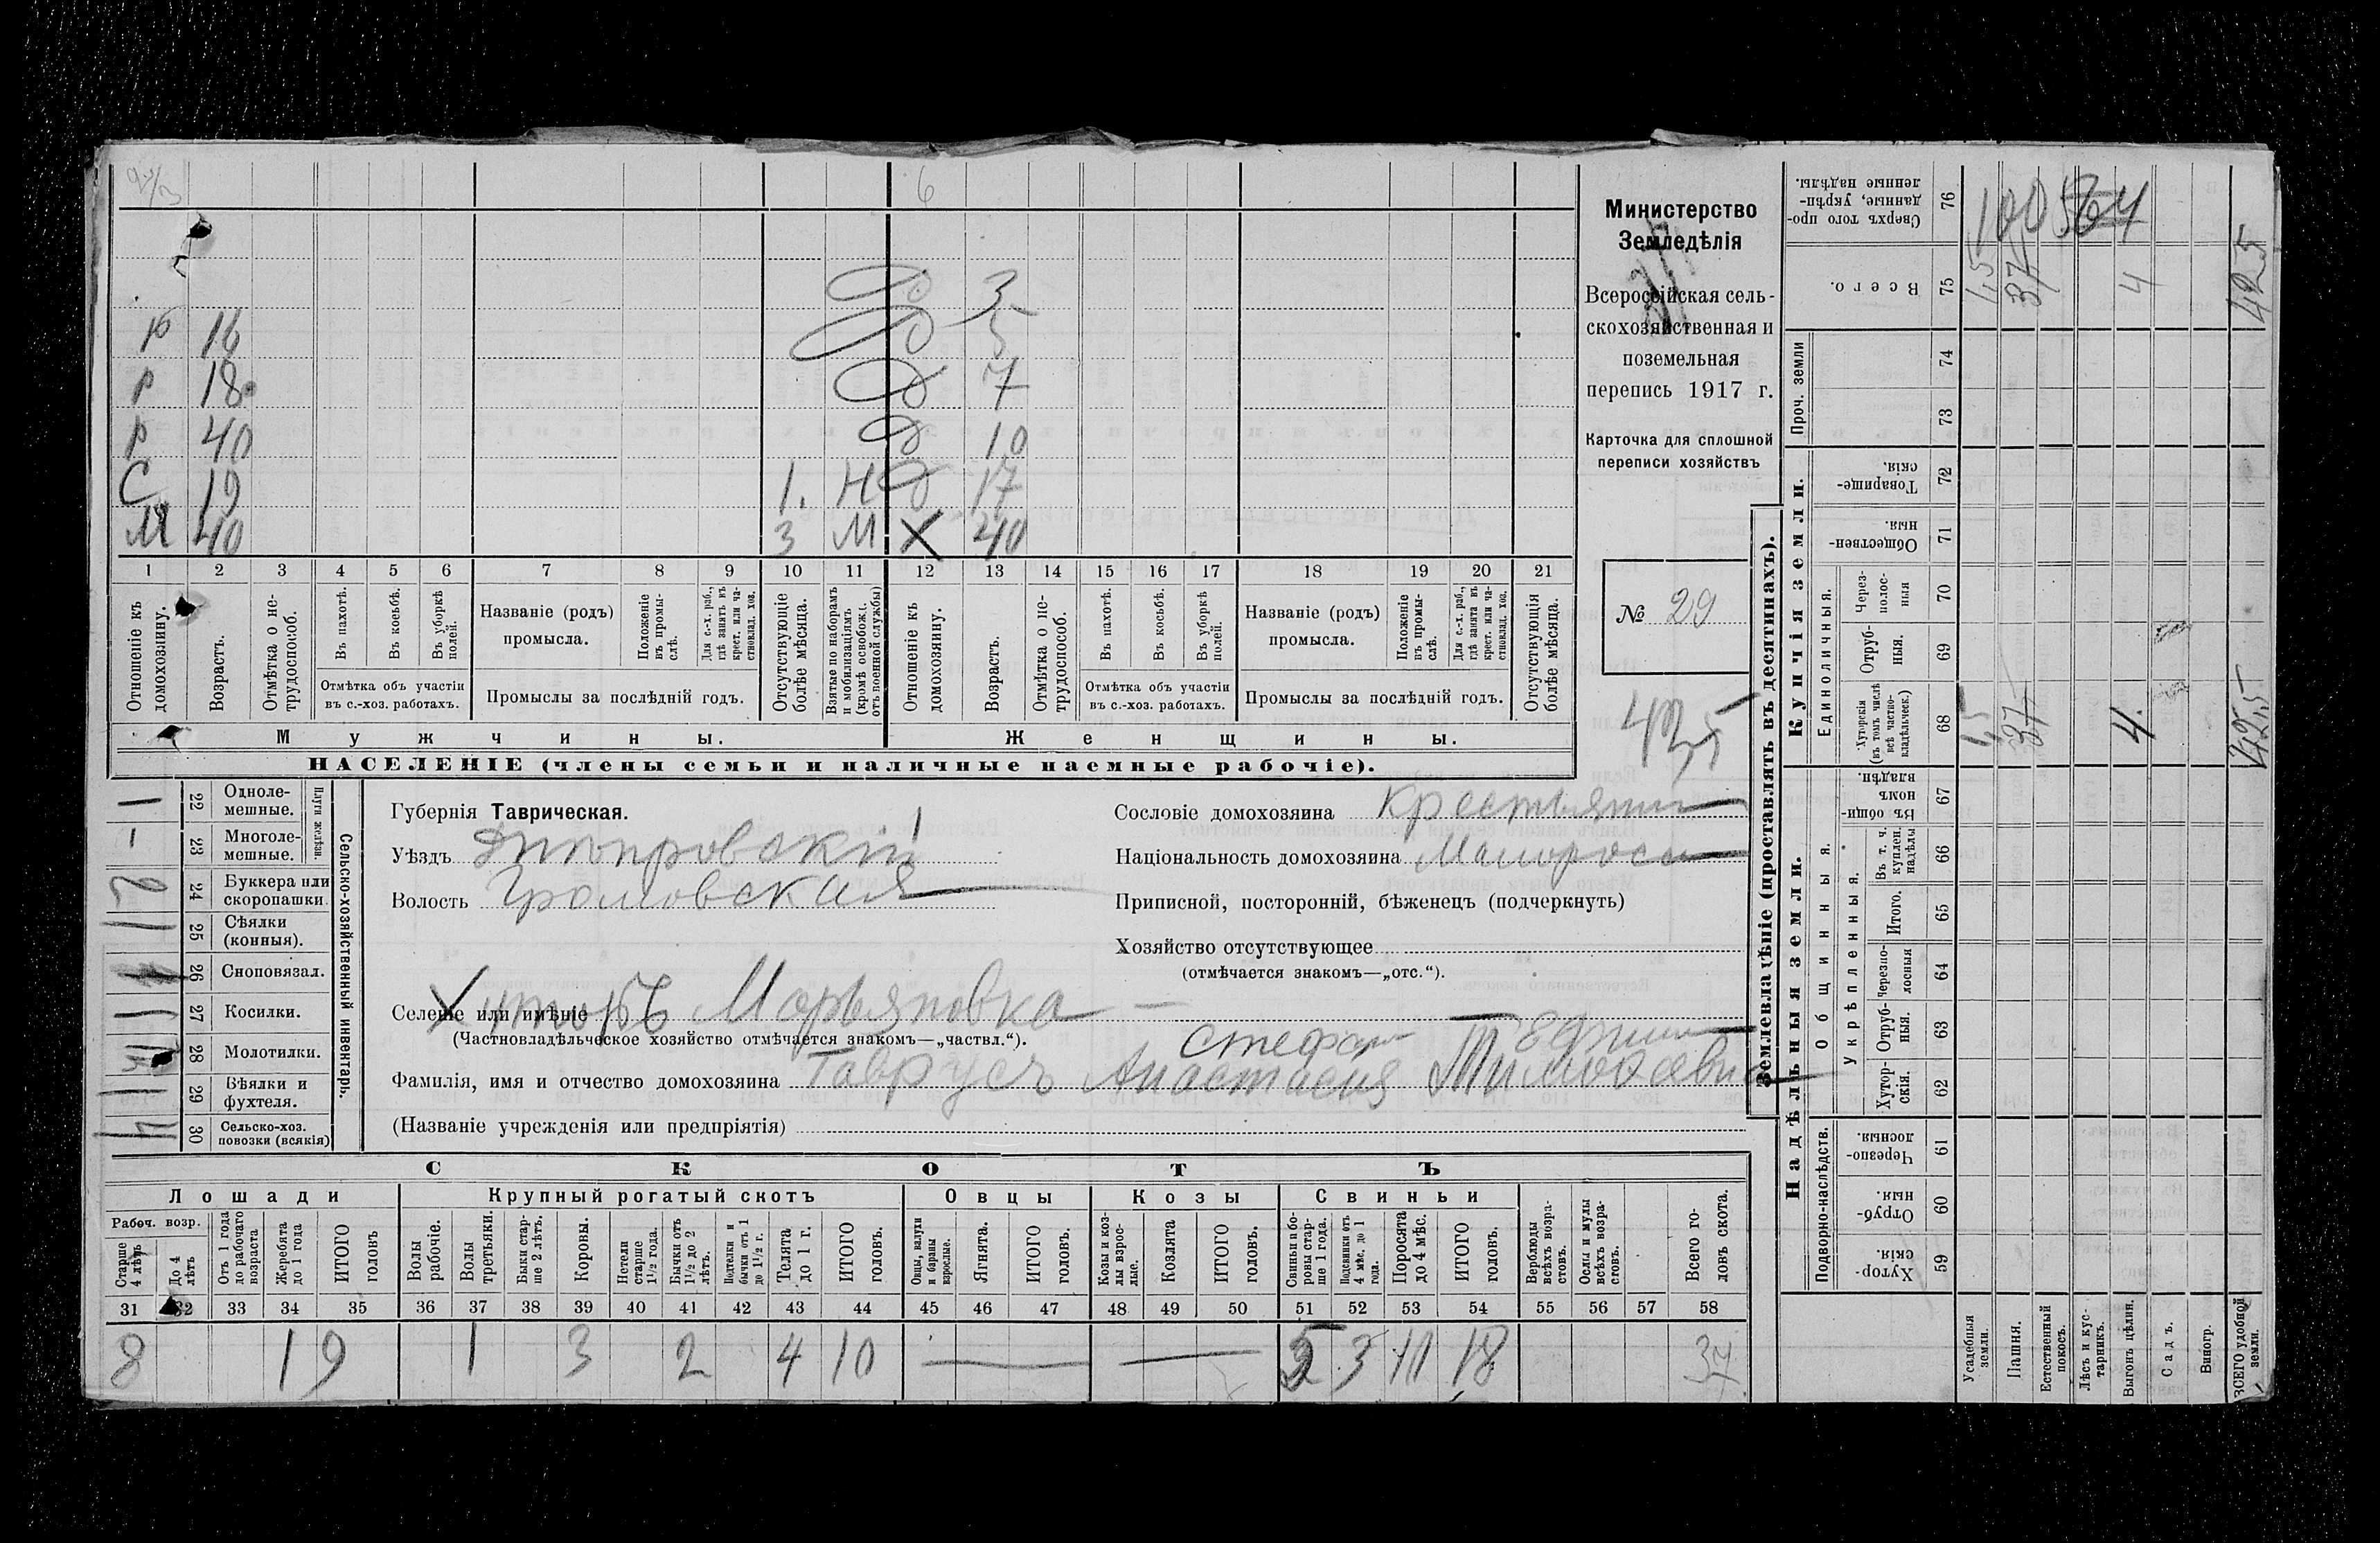 6
Д 3
Р 16 Д 5
Р 18 Д 7
Р 40 Д 10
С 19 1. Н Д 17
М 40 3 М Х 40
1 2 3 4 5 6 7 8 9 10 11 12 13 14 15 16 17 18 19 20 21
Отношеніе къ домохозяину.
Возрастъ.
Отмѣтка о не-трудоспособ.
Въ пахотѣ.
Въ косьбѣ.
Въ уборкѣ полей.
Отмѣтка объ участіи въ с.-хоз. работахъ.
Названіе (родъ) промысла.
Положеніе въ промы-слѣ.
Для с.-х. раб., гдѣ занятъ въ крест. или ча-стновлад. хоз.
Промыслы за послѣдній годъ.
Отсутствующіе болѣе мѣсяца.
Взятые по наборамъ и мобилизаціямъ (кромѣ освобожд. отъ военной службы)
Отношеніе къ домохозяину.
Возрастъ.
Отмѣтка о не-трудоспособ.
Въ пахотѣ.
Въ косьбѣ.
Въ уборкѣ полей.
Отмѣтка объ участіи въ с.-хоз. работахъ.
Названіе (родъ) промысла.
Положеніе въ промы-слѣ.
Для с.-х. раб., гдѣ занята въ крест. или ча-стновлад. хоз.
Промыслы за послѣдній годъ.
Отсутствующія болѣе мѣсяца.
Мужчины. Женщины.
НАСЕЛЕНІЕ (члены семьи и наличные наемные рабочіе).
Министерство
Земледѣлія
Всероссійская сель-
скохозяйственная и
поземельная
перепись 1917 г.
Карточка для сплошной
переписи хозяйствъ
№ 29
Сельско-хозяйственный инвентарь.
Плуги желѣзн.
1 22 Одноле-мешные.
- 23 Многоле-мешные.
2 24 Буккера или скоропашки.
1 25 Сѣялки (конныя).
26 Сноповязал.
1 27 Косилки.
28 Молотилки.
1 29 Вѣялки и фухтеля.
4 30 Сельско-хоз. повозки (всякія)
Губернія Таврическая.
Уѣздъ Днѣпровскій
Волость Громовская
Селеніе или имѣніе Хуторъ Марьяновка
(Частновладѣльческое хозяйство отмѣчается знакомъ—„частвл.“).
Стефан Ефим
Фамилія, имя и отчество домохозяина Таврусъ Анастасия Тимофеевна
(Названіе учрежденія или предпріятія)
Сословіе домохозяина Крестьянин
Національность домохозяина Малоросс
Приписной, посторонній, бѣженецъ (подчеркнуть)
Хозяйство отсутствующее
(отмѣчается знакомъ—„отс.“).
СКОТЪ
Лошади Крупный рогатый скотъ Овцы Козы Свиньи
Рабоч. возр.
Старше 4 лѣтъ
До 4 лѣтъ
Отъ 1 года до рабочаго возраста
Жеребята до 1 года
ИТОГО головъ
Волы рабочіе.
Волы третьяки.
Быки стар-ше 2 лѣтъ.
Коровы.
Нетели старше 1½ года.
Бычки отъ 1½ до 2 лѣтъ.
Подтелки и бычки отъ 1 до 1½ г.
Телята до 1 г.
ИТОГО головъ.
Овцы, валухи и бараны взрослые.
Ягнята.
ИТОГО головъ.
Козы и коз-лы взрос-лые.
Козлята
ИТОГО головъ.
Свиньи и бо-ровы стар-ше 1 года.
Подсвинки отъ 4 мѣс. до 1 года.
Поросята до 4 мѣс.
ИТОГО головъ.
Верблюды всѣхъ возра-стовъ.
Ослы и мулы всѣхъ возра-стовъ.
Всего го-ловъ скота.
31 32 33 34 35 36 37 38 39 40 41 42 43 44 45 46 47 48 49 50 51 52 53 54 55 56 57 58
8 1 9 1 3 2 4 10 — — 5 3 10 18 37
Землевладѣніе (проставлять въ десятинахъ).
Надѣльныя земли.
Купчія земли.
Подворно-наслѣдств.
Общинныя.
Укрѣпленныя.
Единоличныя.
Проч. земли
Сверхъ того про-данные, укрѣп-ленные надѣлы. 76
Всего. 75
74
73
Товарище-скія. 72
Обществен-ныя. 71
Через-полос-ныя 70
Отруб-ныя. 69
Хуторскія (въ томъ числѣ всѣ частно-владѣльческ.) 68
Въ общи-номъ владѣн. 67
Въ т. ч. куплен. надѣлы 66
Итого. 65
Черезпо-лосныя 64
Отруб-ныя. 63
Хутор-скія. 62
Черезпо-лосныя. 61
Отруб-ныя. 60
Хутор-скія. 59
Усадебныя земли.
Пашня.
Естественный покосъ.
Лѣсъ и кус-тарникъ.
Выгонъ цѣлин.
Садъ.
Виногр.
ВСЕГО удобной земли.
1,5 37 4 42,5
1,5 37 4. 42,5